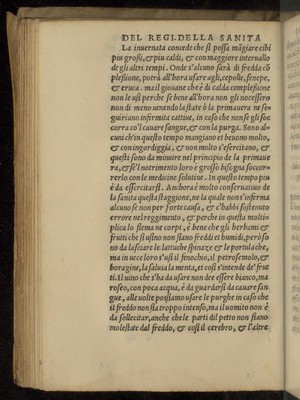 DEL REGI. DELLA SANITA
La inuernata concede che si possa mãgiare cibi
piu grossi, & piu caldi, & con maggiore interuallo
de gli altri tempi. Onde s'alcuno sarà di fredda cõ
plessione, potrà all'hora usare agli, cepolle, senepe,
& eruca. ma il giouane che è di calda complessione
non le usi perche se bene all'hora non gli nocessero
non di meno uenendo la state ò la primauera ne se-
guiriano infirmita cattiue, in caso che non se gli soc
corra co'l cauare sangue, & con la purga. Sono al-
cuni ch'in questo tempo mangiano et beuono molto,
& con ingordiggia, & non molto s'esercitano, &
questi sono da minuire nel principio de la primaue
ra, & se'l notrimento loro è grosso bisogna soccor-
rerlo con le medicine solutiue. In questo tempo piu
è da essercitarsi. Anchora è molto conseruatiuo de
la sanita questa staggione, ne la quale non s'inferma
alcuno se non per forte causa, & c'habbi sostenuto
errore nel reggimento, & perche in questa molti-
plica lo flema ne corpi, è bene che gli herbami &
frutti che si usano non siano freddi et humidi, però so
no da lasciare le lattuche spinaze & le portulache,
ma in uece loro s'usi il finochio, il petrosemolo, &
boragine, la saluia la menta, et cosi s'intende de' frut
ti. Il uino che s'ha da usare non dee essere bianco, ma
roseo, con poca acqua, è da guardarsi da cauare san-
gue, alle uolte possiamo usare le purghe in caso che
il freddo non sia troppo intenso, ma il uomito non è
da sollecitar, anche che le parti dil petto non siano
molestate dal freddo, & cosi il cerebro, & l'altre